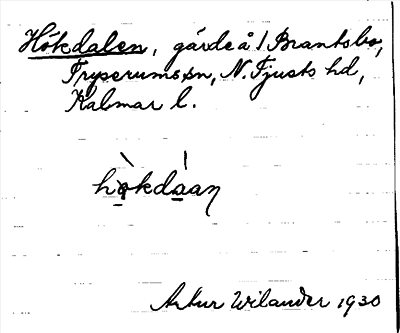 Hökdalen, gärde å Brantsbo,
Fryserums sn, N. Tjusts hd,
Kalmar l.
hökdaan
Artur Wilander 1930